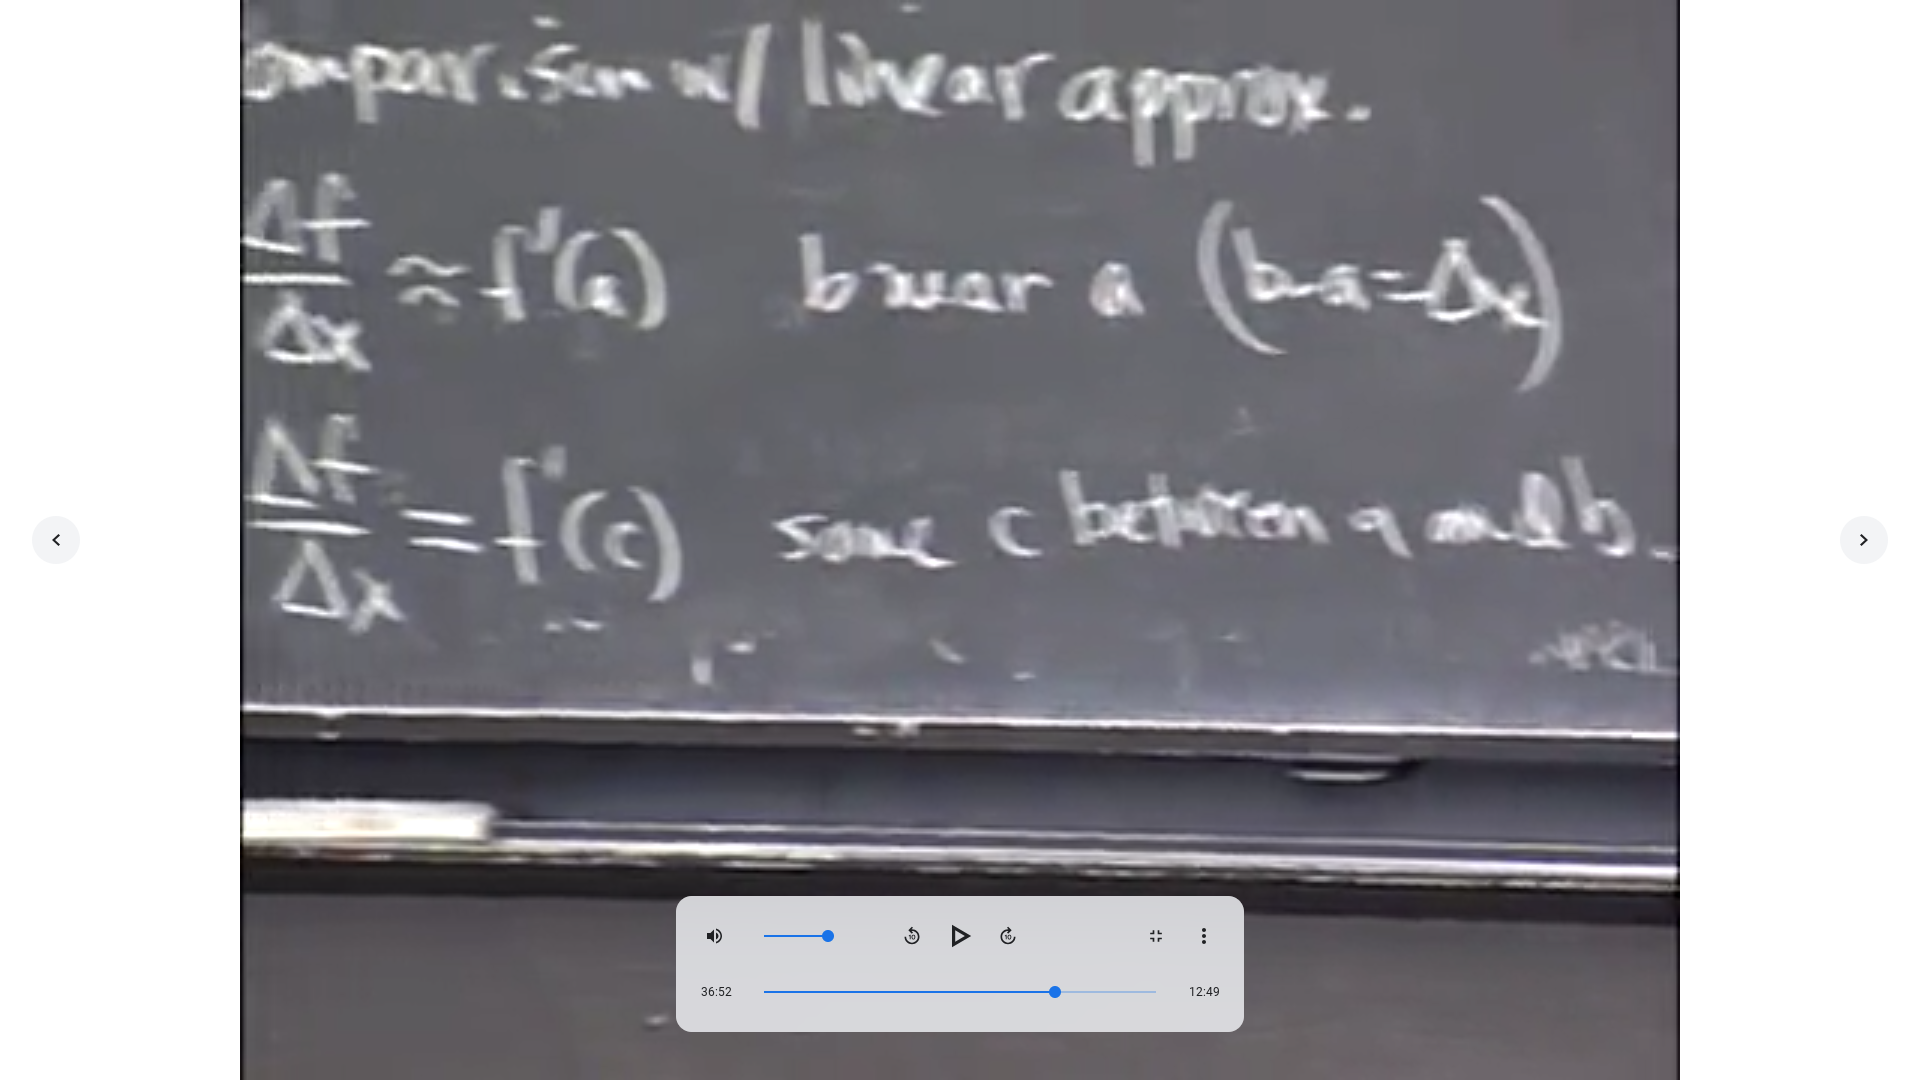 omparison w/ linear approx.
Δf/Δx ≈ f'(a) b near a (b-a=Δx)
Δf/Δx = f'(c) some c between a and b.
10 10
36:52 12:49